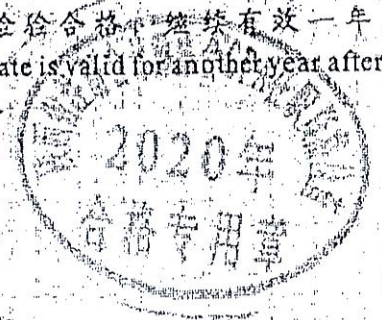 检验合格,继续有效一年
ate is valid for another year after
2020年
合格专用章